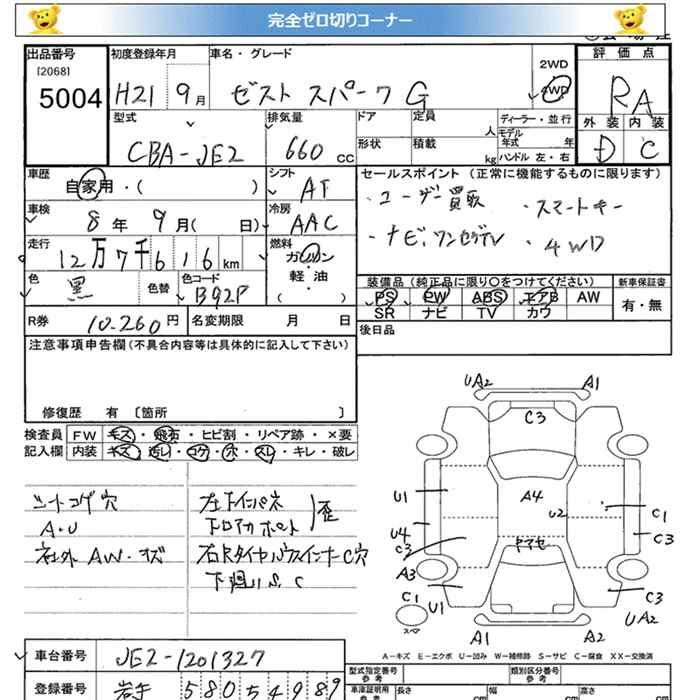 完全ゼロ切りコーナー
出品番号 初度登録年月 車名・グレード 2WD 評価点
[2068]
5004 H21 9月 ゼスト スパーク G 4WD RA
型式 排気量 ドア 定員 人 ディーラー・並行 外装 内装
CBA-JE2 660 CC 形状 積載 kg モデル年式 年 D C
ハンドル 左・右
車歴 シフト セールスポイント (正常に機能するものに限ります)
自家用・( ) AT ・ユーザー買取 ・スマートキー
車検 冷房
8年 9月( 日) AAC ・ナビ,ワンセグTV ・4WD
走行 燃料
12万7千616km ガソリン
軽・油
( )
色 色替 色コード 装備品 (純正品に限り○をつけてください) 新車保証書
黒 B92P PS PW ABS エアB AW 有・無
SR ナビ TV カワ
R券 10.260円 名変期限 月 日 後日品
注意事項申告欄(不具合内容等は具体的に記入して下さい)
修復歴 有 〔箇所 〕
検査員 FW キズ・飛石・ヒビ割・リペア跡・×要
記入欄 内装 キズ・汚レ・コゲ・穴・スレ・キレ・破レ
シートコゲ穴
A・U
社外 AW・キズ
左下インパネ
下回り S.C
UA2 A1
C3
U1 A4 U2 C1
U4 C3
C3 ヤマセ
A3
C1 U1 C3
スペア UA2
A1 A2
A-キズ E-エクボ U-凹み W-補修跡 S-サビ C-腐食 XX-交換済
車台番号 JE2-1201327 型式指定番号 参考 類別区分番号 参考
登録番号 岩手 580 車庫証明用 参考 長さ cm 幅 cm 高さ cm